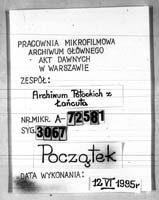 PRACOWNIA MIKROFILMOWA
ARCHIWUM GŁÓWNEGO
AKT DAWNYCH
W WARSZAWIE
ZESPÓŁ:
Archiwum Potockich z
Łańcuta
NR.MIKR. A- 72581
SYG. 3067
Początek
DATA WYKONANIA:
12 VI 1995r